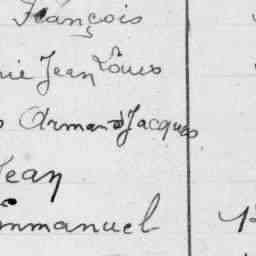 François
rie Jean Louis
s Armand Jacques
Jean
Emmanuel